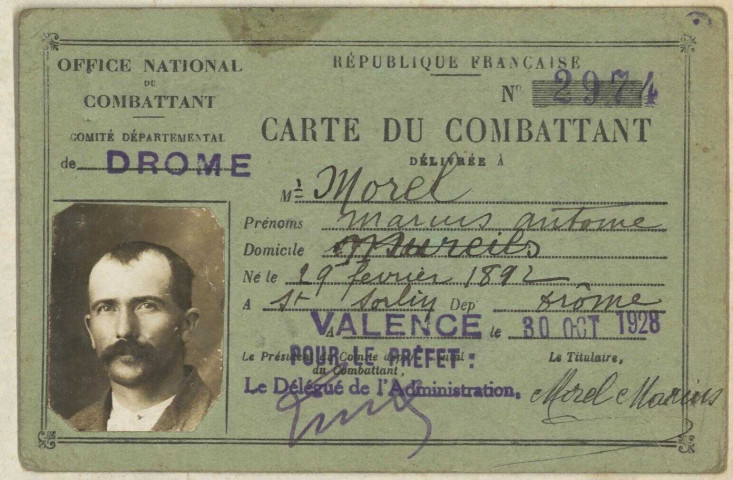 OFFICE NATIONAL
DU
COMBATTANT
COMITÉ DÉPARTEMENTAL
de DROME
RÉPUBLIQUE FRANÇAISE
N° 2974
CARTE DU COMBATTANT
DÉLIVRÉE À
Mr Morel
Prénoms Marius Antoine
Domicile Mureils
Né le 29 février 1892
A St Sorlin Dep Drôme
A VALENCE le 30 OCT 1928
Le Président du Comité départemental
du Combattant,
POUR LE PRÉFET :
Le Délégué de l'Administration,
Le Titulaire,
Morel Marius